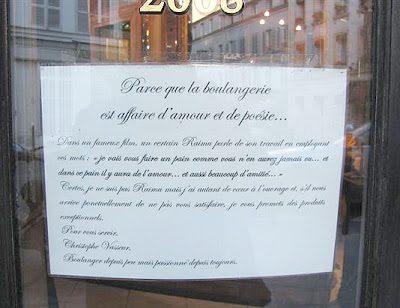 2008
Parce que la boulangerie
est affaire d'amour et de poésie...
Dans un fameux film, un certain Raimu parle de son travail en employant
ces mots : « je vais vous faire un pain comme vous n'en aurez jamais vu... et
dans ce pain il y aura de l'amour... et aussi beaucoup d'amitié... »
Certes, je ne suis pas Raimu mais j'ai autant de cœur à l'ouvrage et, s'il nous
arrive ponctuellement de ne pas vous satisfaire, je vous promets des produits
exceptionnels.
Pour vous servir,
Christophe Vasseur,
Boulanger depuis peu mais passionné depuis toujours.